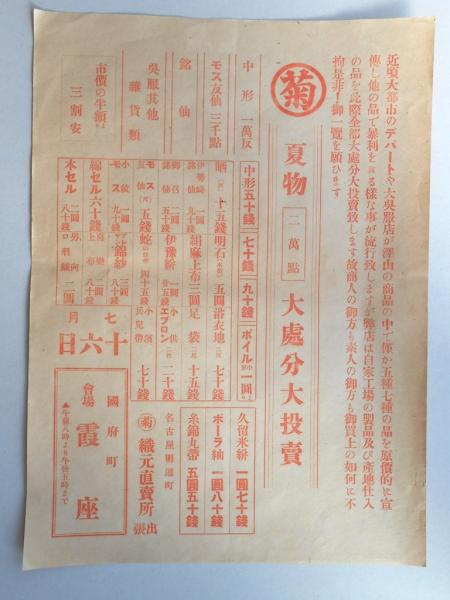 近頃大都市のデパートや大呉服店が澤山の商品の中で僅か五種七種の品を原價的に宣
傳し他の品で暴利を貪る樣な事が流行致しますが弊店は自家工場の製品及び產地仕入
の品を此際全部大處分大投賣致します故商人の御方も素人の御方も御買上の如何に不
拘是非！御一覽を願ひます
菊
夏物 二萬點 大處分大投賣
中形 一萬反
モス友仙 三千點
銘仙
呉服其他
雜貨類
市價の半額より
三割安
中形五十錢 七十錢 九十錢 ボイル 一圓
十五錢 明石 五圓 浴衣地 七十錢
伊勢崎銘仙 二圓 絹麻上布 三圓 足袋 十五錢
一圓 伊豫絣 エプロン 二十錢
モス友仙 五錢 四十五錢 兵兒帶 七十錢
八十錢
セル 六十錢
木セル 八十錢 二圓
久留米絣 一圓七十錢
ポーラ紬 一圓八十錢
糸錦丸帶 五圓五十錢
名古屋明道町
菊 織元直賣所 出張
七月
十六日
國府町
會場 霞座
▲午前八時より午後五時まで